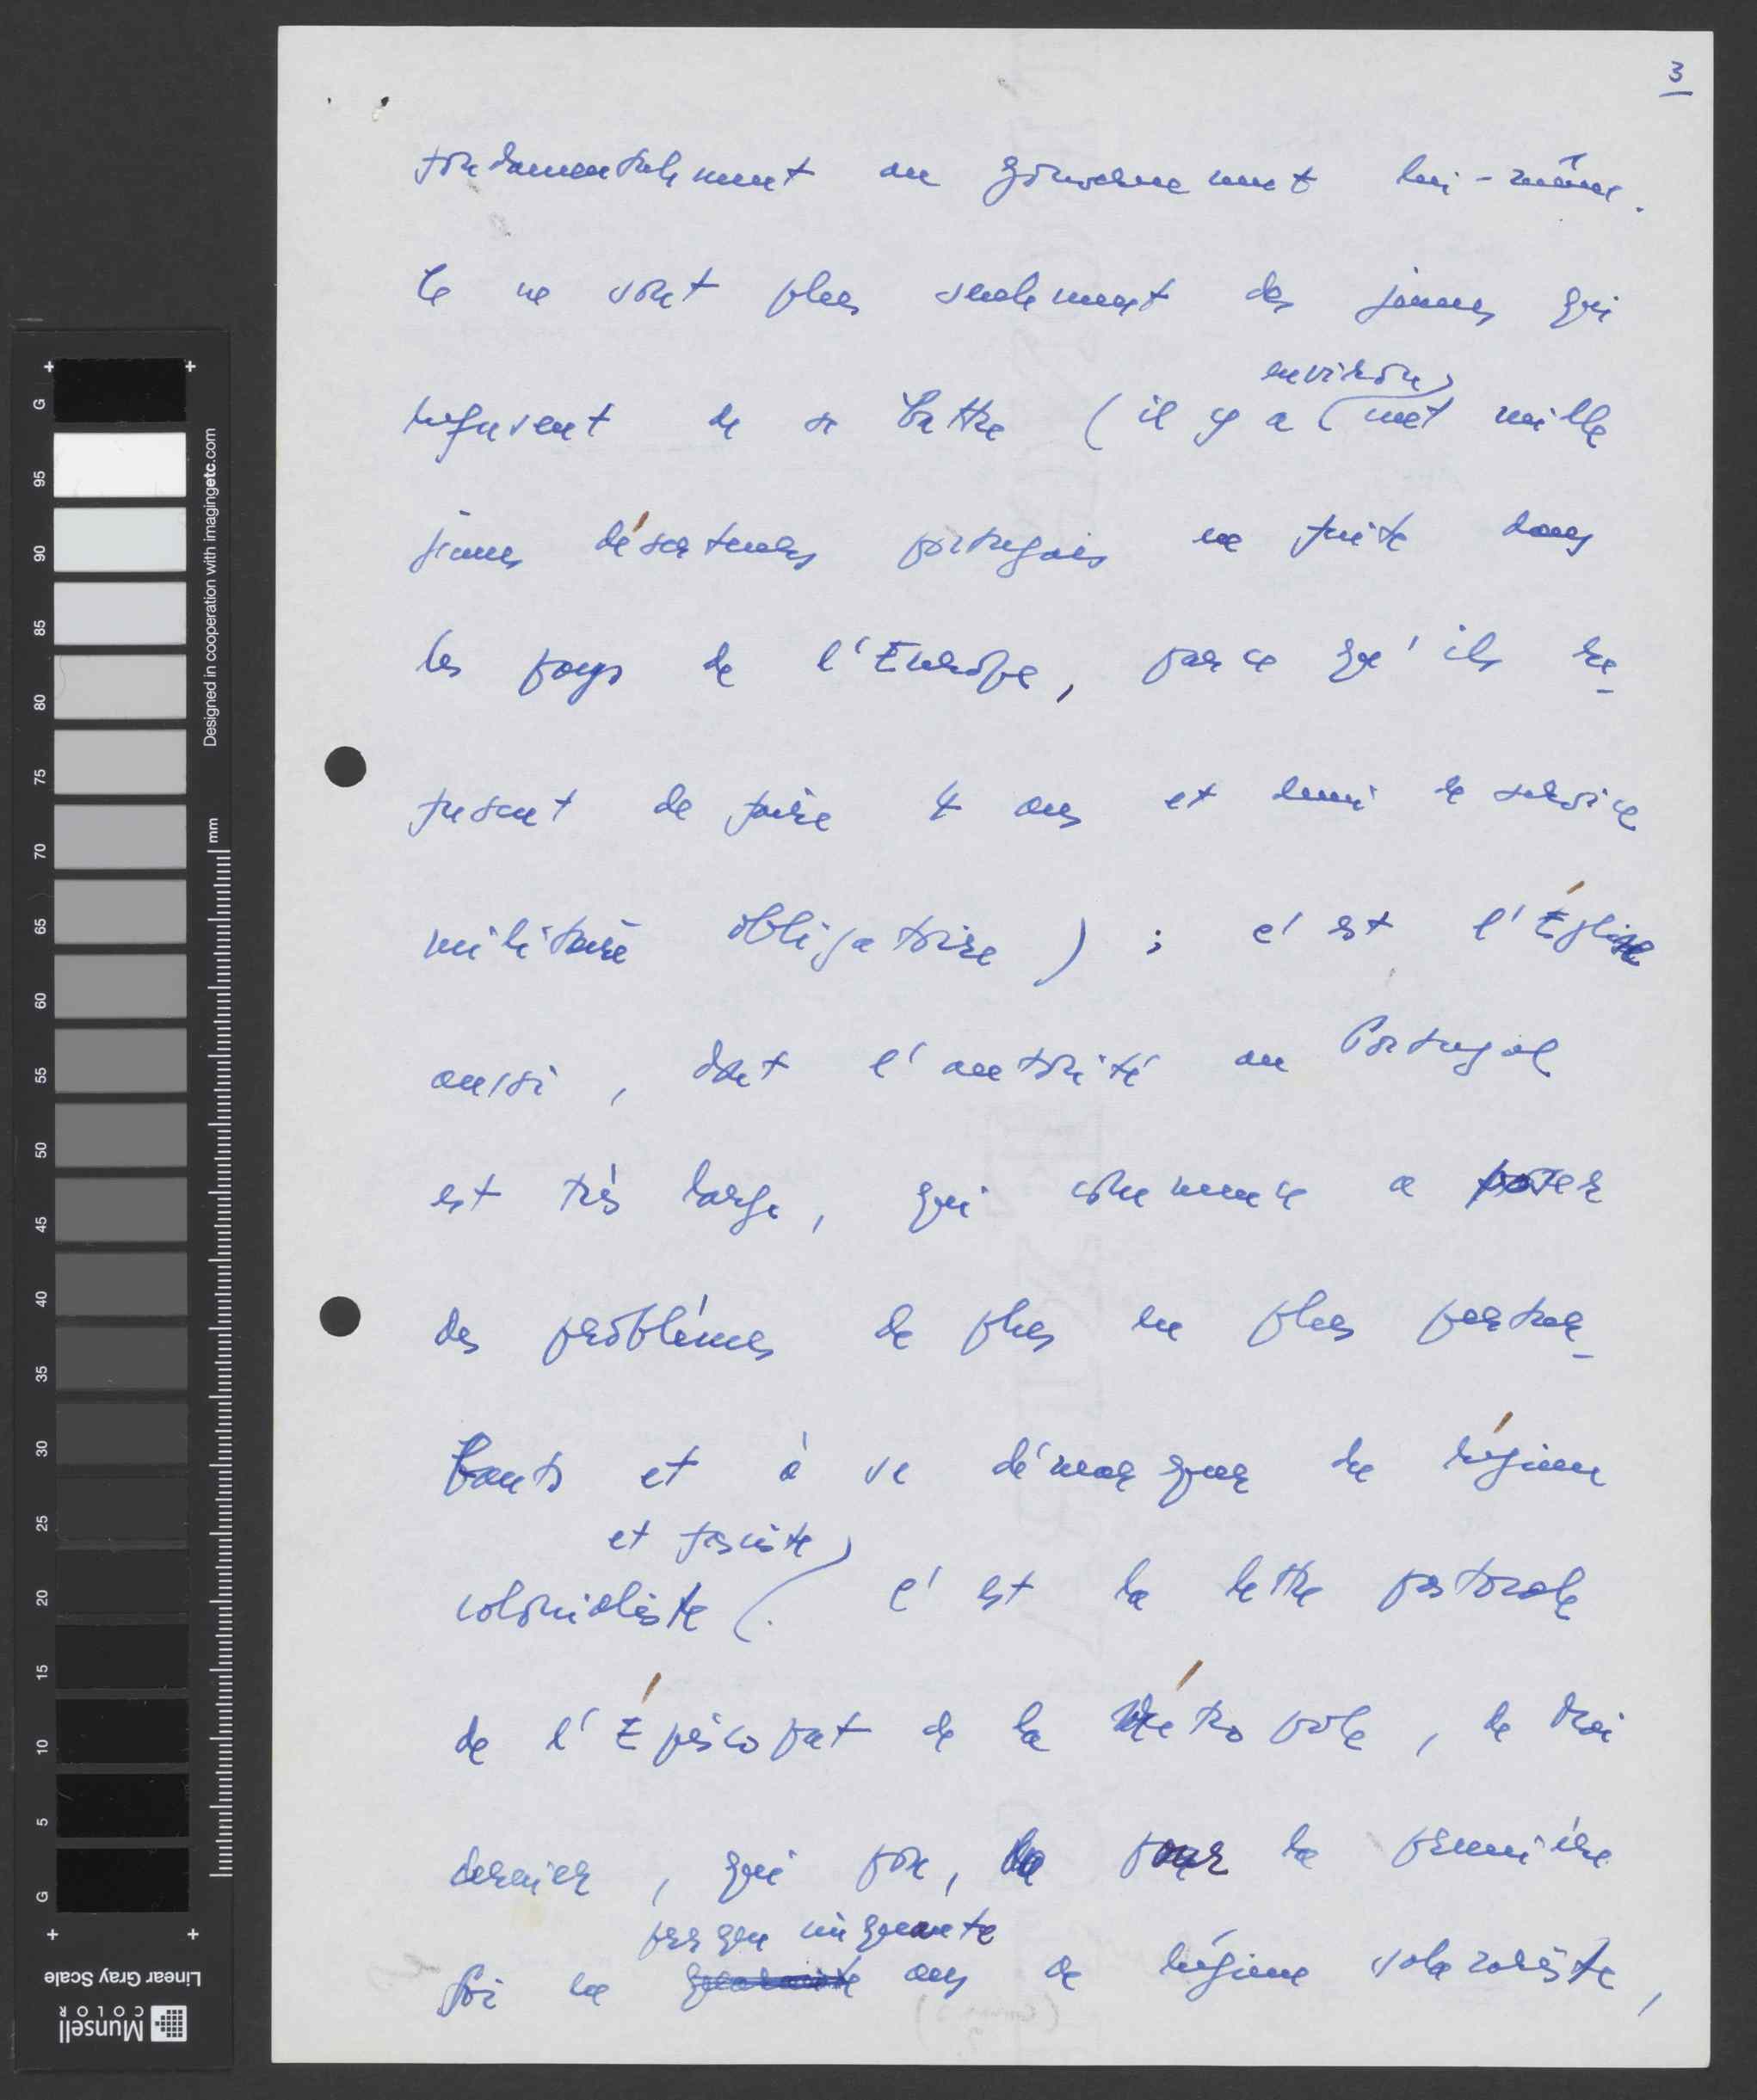 3
fondamentalement au gouvernement lui-même.
Ce ne sont plus seulement des jeunes qui
environ
refusent de se battre (il y a cent mille
jeunes déserteurs portugais en fuite dans
les pays de l'Europe, parce qu'ils re-
fusent de faire 4 ans et demi de service
militaire obligatoire) ; c'est l'Église
aussi, dont l'autorité au Portugal
est très large, qui commence a poser
des problèmes de plus en plus pertur-
bants et à se démarquer du régime
et fasciste
colonialiste. C'est la lettre pastorale
de l'Épiscopat de la Métropole, de Mai
dernier, qui for, pour la première
presque cinquante
foi en ans de régime salazariste,
G 95 90 85 80 75 70 65 60 55 50 45 40 35 30 25 20 15 10 5 G
Designed in cooperation with imagingetc.com
mm
Linear Gray Scale
Munsell
COLOR